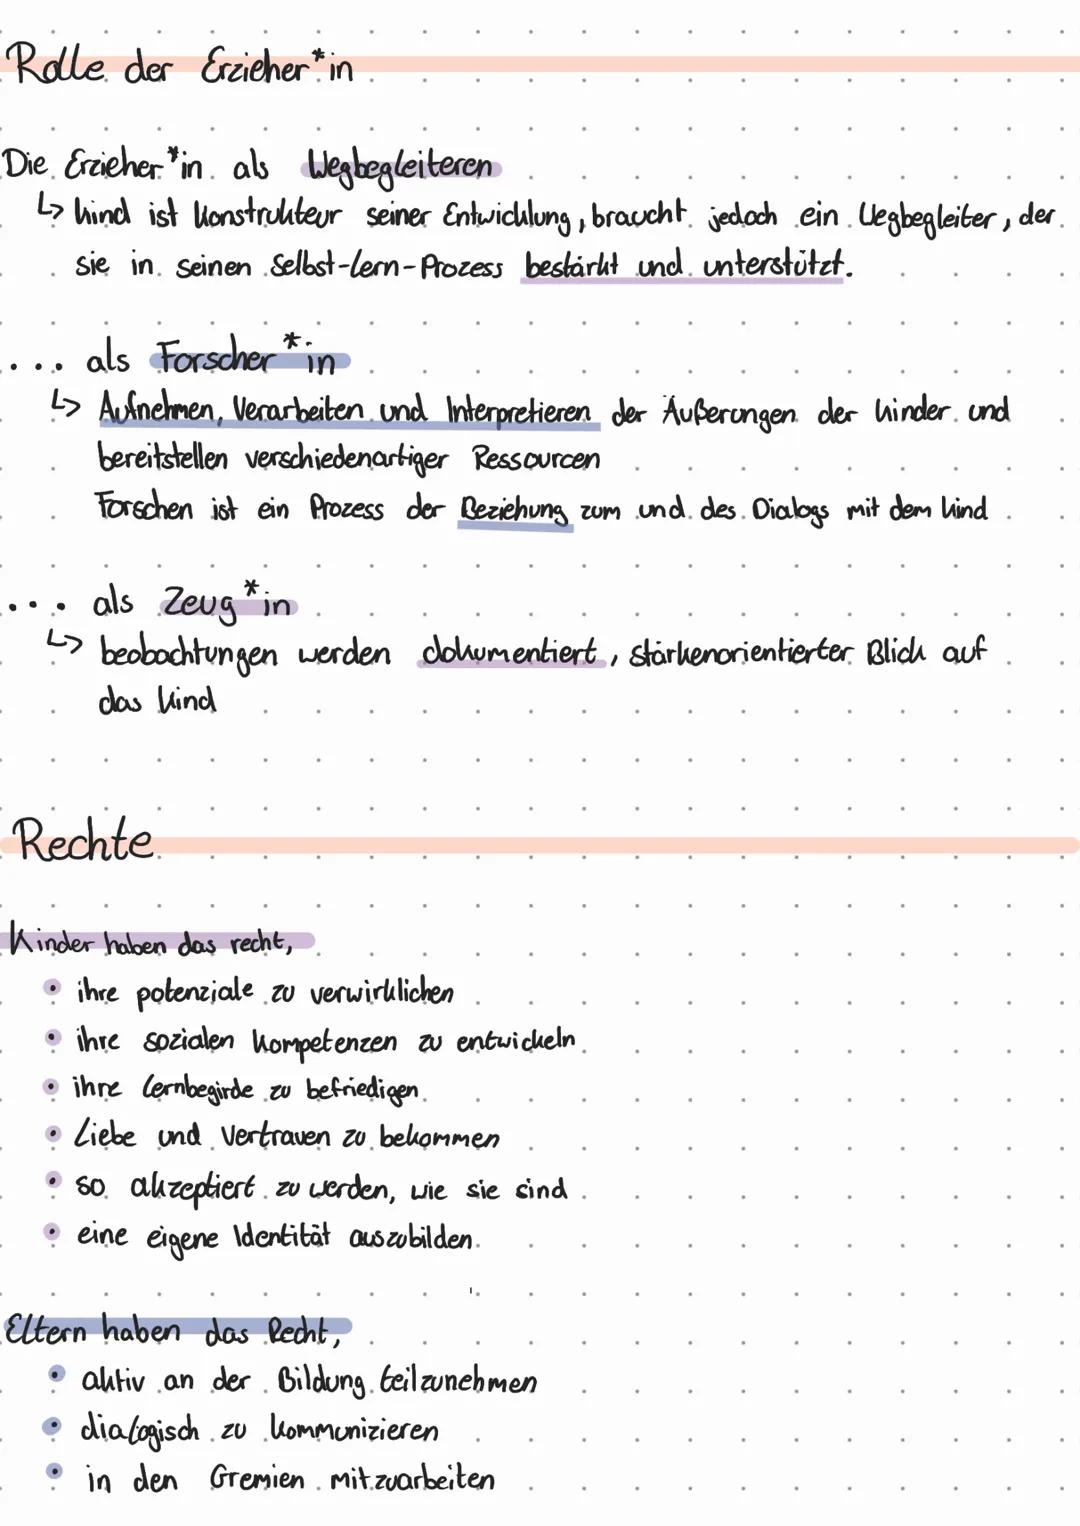 Rolle der Erzieher*in
Die Erzieher*in als Wegbegleiteren
↳ kind ist Konstrukteur seiner Entwicklung, braucht jedoch ein Wegbegleiter, der
sie in seinen Selbst-Lern-Prozess bestärkt und unterstützt.
... als Forscher*in
↳ Aufnehmen, Verarbeiten und Interpretieren der Äußerungen der Kinder und
bereitstellen verschiedenartiger Ressourcen
Forschen ist ein Prozess der Beziehung zum und des Dialogs mit dem Kind
... als Zeug*in
↳ beobachtungen werden dokumentiert, stärkenorientierter Blick auf
das Kind
Rechte
Kinder haben das recht,
• ihre potenziale zu verwirklichen
• ihre sozialen Kompetenzen zu entwickeln
• ihre Lernbegirde zu befriedigen
• Liebe und Vertrauen zu bekommen
• so akzeptiert zu werden, wie sie sind
• eine eigene Identität auszubilden
Eltern haben das Recht,
• aktiv an der Bildung teilzunehmen
• dialogisch zu kommunizieren
• in den Gremien mitzuarbeiten